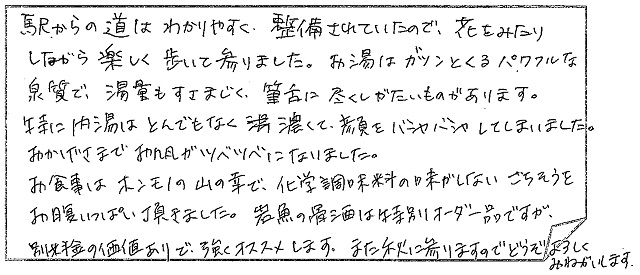 駅からの道はわかりやすく、整備されていたので、花をみたり
しながら楽しく歩いて参りました。お湯はガツンとくるパワフルな
泉質で、湯量もすさまじく、筆舌に尽くしがたいものがあります。
特に内湯はとんでもなく濃くて、顔をバシャバシャしてしまいました。
おかげさまでお肌がツベツベになりました。
お食事はホンモノの山の幸で、化学調味料の味がしないごちそうを
お腹いっぱい頂きました。岩魚の骨酒は特別オーダー品ですが、
別料金の価値ありで、強くオススメします。また秋に参りますのでどうぞよろしく
おねがいします。